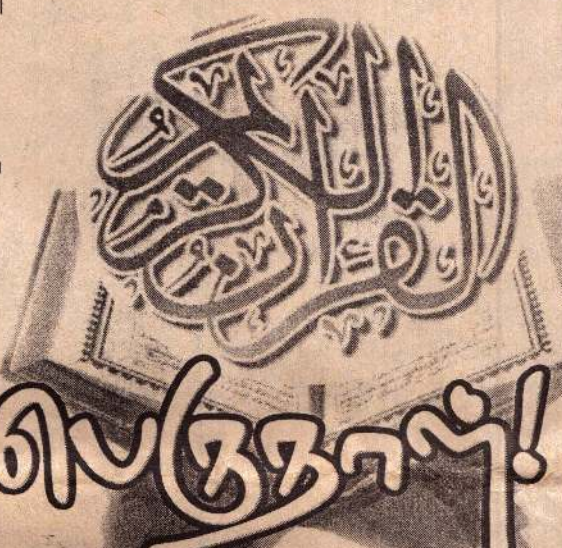 القرآن الكريم
பெருநாள்!